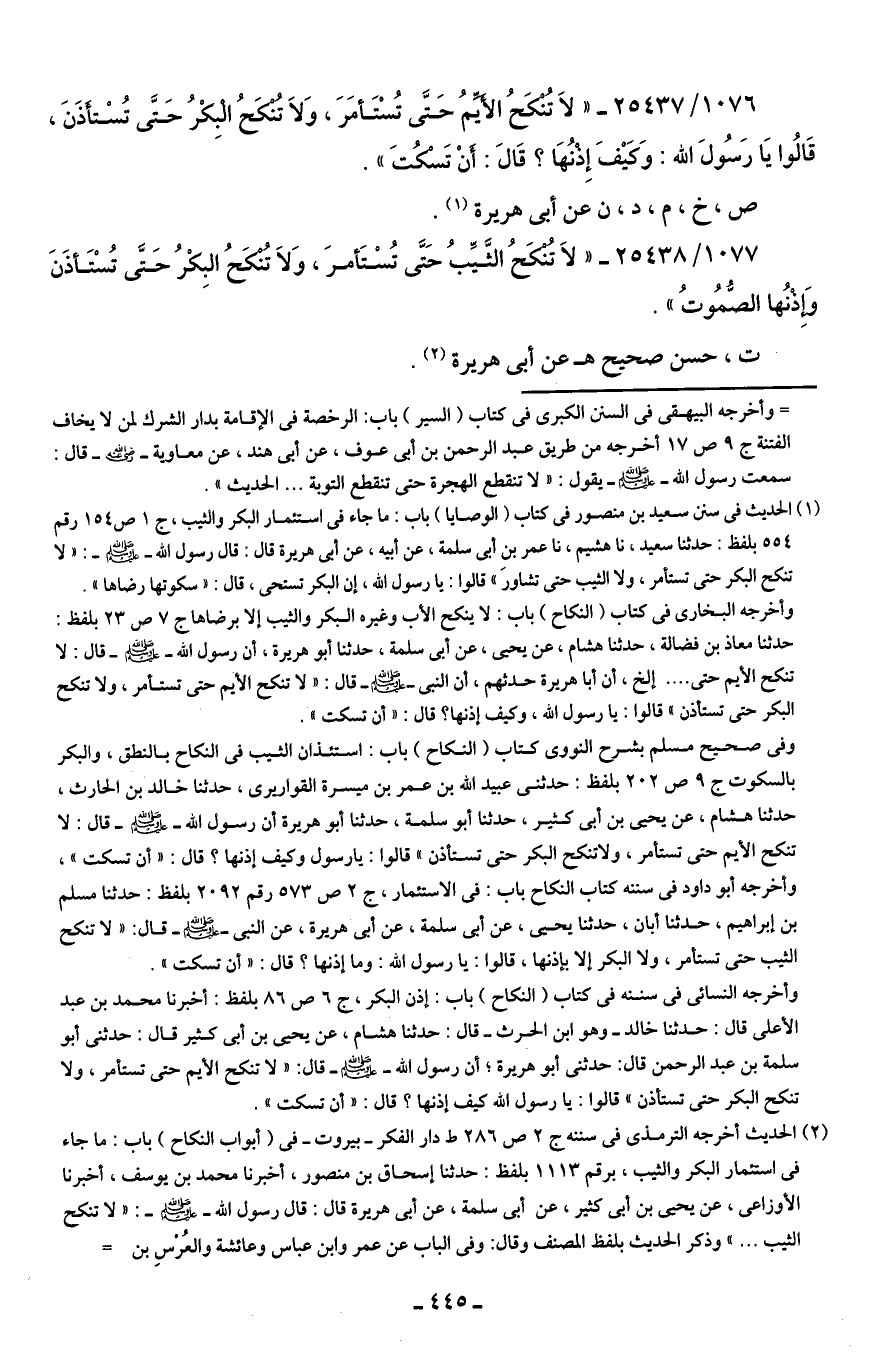 ٢٥٤٣٧/١٠٧٦ ـ « لاَ تُنْكَحُ الأَيِّمُ حَتَّى تُسْتَأمَرَ ، وَلاَ تُنْكَحُ الْبِكْرُ حَتَّى تُسْتأذَنَ ،
قَالُوا يَا رَسُولَ الله : وَكَيْفَ إِذْنُهَا ؟ قَالَ : أَنْ تَسْكُتَ » .
ص ، خ ، م ، د ، ن عن أبى هريرة (١) .
٢٥٤٣٨/١٠٧٧ ـ « لاَ تُنْكَحُ الثَّيِّبُ حَتَّى تُسْتَأمرَ ، وَلاَ تُنْكَحُ البِكْرُ حَتَّى تُسْتَأذَنَ
وَإِذْنُها الصُّمُوتُ » .
ت ، حسن صحيح هـ عن أبى هريرة (٢) .
= وأخرجه البيهقى فى السنن الكبرى فى كتاب ( السير ) باب: الرخصة فى الإقامة بدار الشرك لمن لا يخاف
الفتنة ج ٩ ص ١٧ أخرجه من طريق عبد الرحمن بن أبى عوف ، عن أبى هند ، عن معاوية ـ رضي الله عنه ـ قال :
سمعت رسول الله ـ ﷺ ـ يقول : « لا تنقطع الهجرة حتى تنقطع التوبة ... الحديث » .
(١) الحديث فى سنن سعيد بن منصور فى كتاب ( الوصايا ) باب : ما جاء فى استئمار البكر والثيب ، ج ١ ص ١٥٤ رقم
٥٥٤ بلفظ : حدثنا سعيد ، نا هشيم ، نا عمر بن أبى سلمة ، عن أبيه ، عن أبى هريرة قال : قال رسول الله ـ ﷺ ـ : « لا
تنكح البكر حتى تستأمر ، ولا الثيب حتى تشاورَ » قالوا : يا رسول الله ، إن البكر تستحى ، قال : « سكوتها رضاها » .
وأخرجه البخارى فى كتاب ( النكاح ) باب : لا ينكح الأب وغيره البكر والثيب إلا برضاها ج ٧ ص ٢٣ بلفظ :
حدثنا معاذ بن فضالة ، حدثنا هشام ، عن يحيى ، عن أبى سلمة ، حدثنا أبو هريرة ، أن رسول الله ـ ﷺ ـ قال : لا
تنكح الأيم حتى.... إلخ ، أن أبا هريرة حدثهم ، أن النبى ـ ﷺ ـ قال : « لا تنكح الأيم حتى تستأمر ، ولا تنكح
البكر حتى تستأذن » قالوا : يا رسول الله ، وكيف إذنها؟ قال : « أن تسكت » .
وفى صحيح مسلم بشرح النووى كتاب ( النكاح ) باب : استئذان الثيب فى النكاح بالنطق ، والبكر
بالسكوت ج ٩ ص ٢٠٢ بلفظ : حدثنى عبيد الله بن عمر بن ميسرة القواريرى ، حدثنا خالد بن الحارث ،
حدثنا هشام ، عن يحيى بن أبى كثير ، حدثنا أبو سلمة ، حدثنا أبو هريرة أن رسول الله ـ ﷺ ـ قال : لا
تنكح الأيم حتى تستأمر ، ولاتنكح البكر حتى تستأذن » قالوا : يارسول وكيف إذنها ؟ قال : « أن تسكت » ،
وأخرجه أبو داود فى سننه كتاب النكاح باب : فى الاستئمار ، ج ٢ ص ٥٧٣ رقم ٢٠٩٢ بلفظ : حدثنا مسلم
بن إبراهيم ، حدثنا أبان ، حدثنا يحيى ، عن أبى سلمة ، عن أبى هريرة ، عن النبى ـ ﷺ ـ قال: « لا تنكح
الثيب حتى تستأمر ، ولا البكر إلا بإذنها ، قالوا : يا رسول الله : وما إذنها ؟ قال : « أن تسكت » .
وأخرجه النسائى فى سننه فى كتاب ( النكاح ) باب : إذن البكر ، ج ٦ ص ٨٦ بلفظ : أخبرنا محمد بن عبد
الأعلى قال : حدثنا خالد ـ وهو ابن الحرث ـ قال : حدثنا هشام ، عن يحيى بن أبى كثير قال : حدثنى أبو
سلمة بن عبد الرحمن قال: حدثنى أبو هريرة ؛ أن رسول الله ـ ﷺ ـ قال: « لا تنكح الأيم حتى تستأمر ، ولا
تنكح البكر حتى تستأذن » قالوا : يا رسول الله كيف إذنها ؟ قال : « أن تسكت » .
(٢) الحديث أخرجه الترمذى فى سننه ج ٢ ص ٢٨٦ ط دار الفكر ـ بيروت ـ فى ( أبواب النكاح ) باب : ما جاء
فى استئمار البكر والثيب ، برقم ١١١٣ بلفظ : حدثنا إسحاق بن منصور ، أخبرنا محمد بن يوسف ، أخبرنا
الأوزاعى ، عن يحيى بن أبى كثير ، عن أبى سلمة ، عن أبى هريرة قال : قال رسول الله ـ ﷺ ـ : « لا تنكح
الثيب ... » وذكر الحديث بلفظ المصنف وقال: وفى الباب عن عمر وابن عباس وعائشة والعُرْسِ بن =
ـ ٤٤٥ ـ